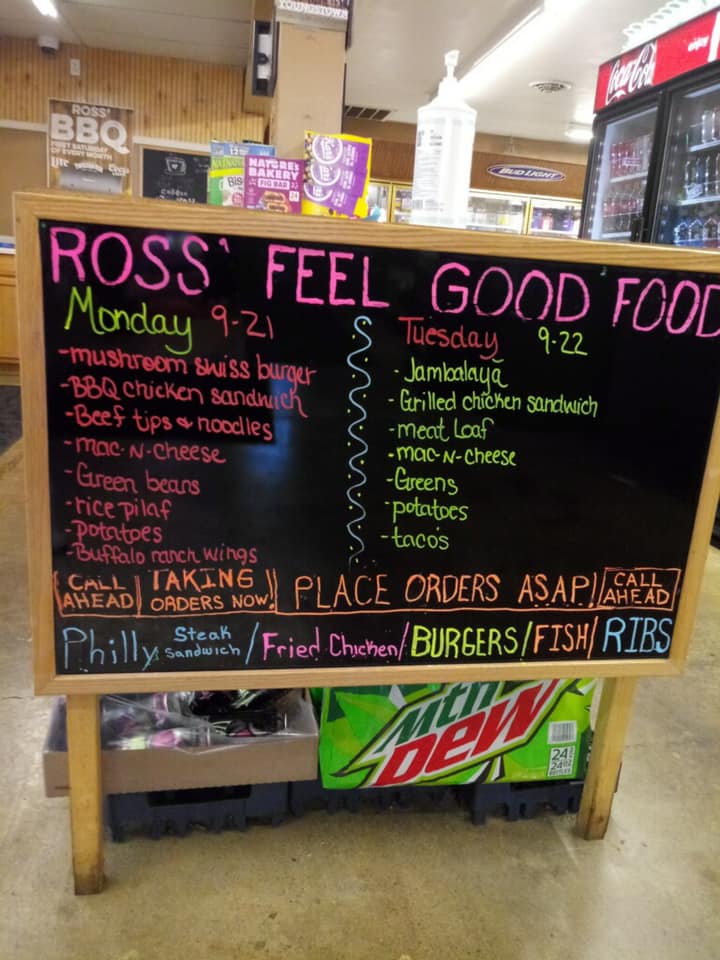 YOUNGSTOWN
ROSS'
BBQ
FIRST SATURDAY
OF EVERY MONTH
Lite
Coors
NATURE'S
BAKERY
FIG BAR
Coca-Cola
enjoy
BUD LIGHT
ROSS' FEEL GOOD FOOD
Monday 9-21
-mushroom swiss burger
-BBQ chicken sandwich
-Beef tips & noodles
-mac-N-cheese
-Green beans
-rice pilaf
-Potatoes
-Buffalo ranch wings
Tuesday 9-22
-Jambalaya
-Grilled chicken sandwich
-meat Loaf
-mac-N-cheese
-Greens
-potatoes
-tacos
CALL AHEAD
TAKING ORDERS NOW!
PLACE ORDERS ASAP!
CALL AHEAD
Philly Steak Sandwich / Fried Chicken / BURGERS / FISH / RIBS
Mtn
DEW
24
24oz
BOTTLES